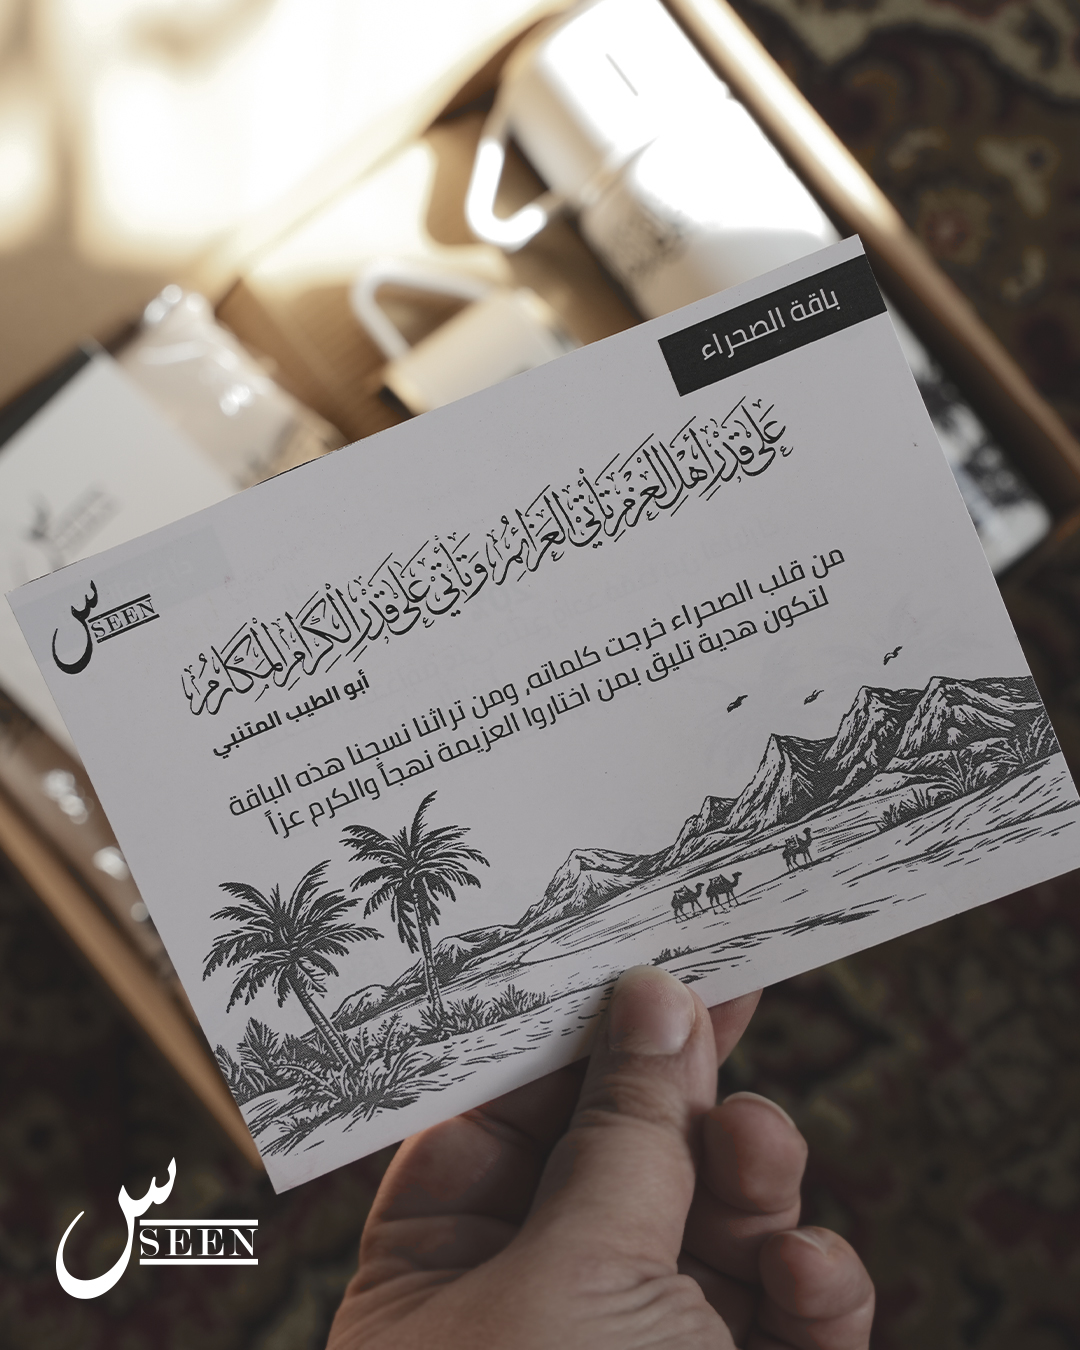 باقة الصحراء
عَلى قَدْرِ أَهْلِ العَزْمِ تَأْتي العَزائِمُ وَتَأْتي عَلى قَدْرِ الْكِرامِ الْمَكارِمُ
أبو الطيب المتنبي
من قلب الصحراء خرجت كلماته، ومن تراثنا نسجنا هذه الباقة
لتكون هدية تليق بمن اختاروا العزيمة نهجاً والكرم عزاً
س SEEN
س SEEN